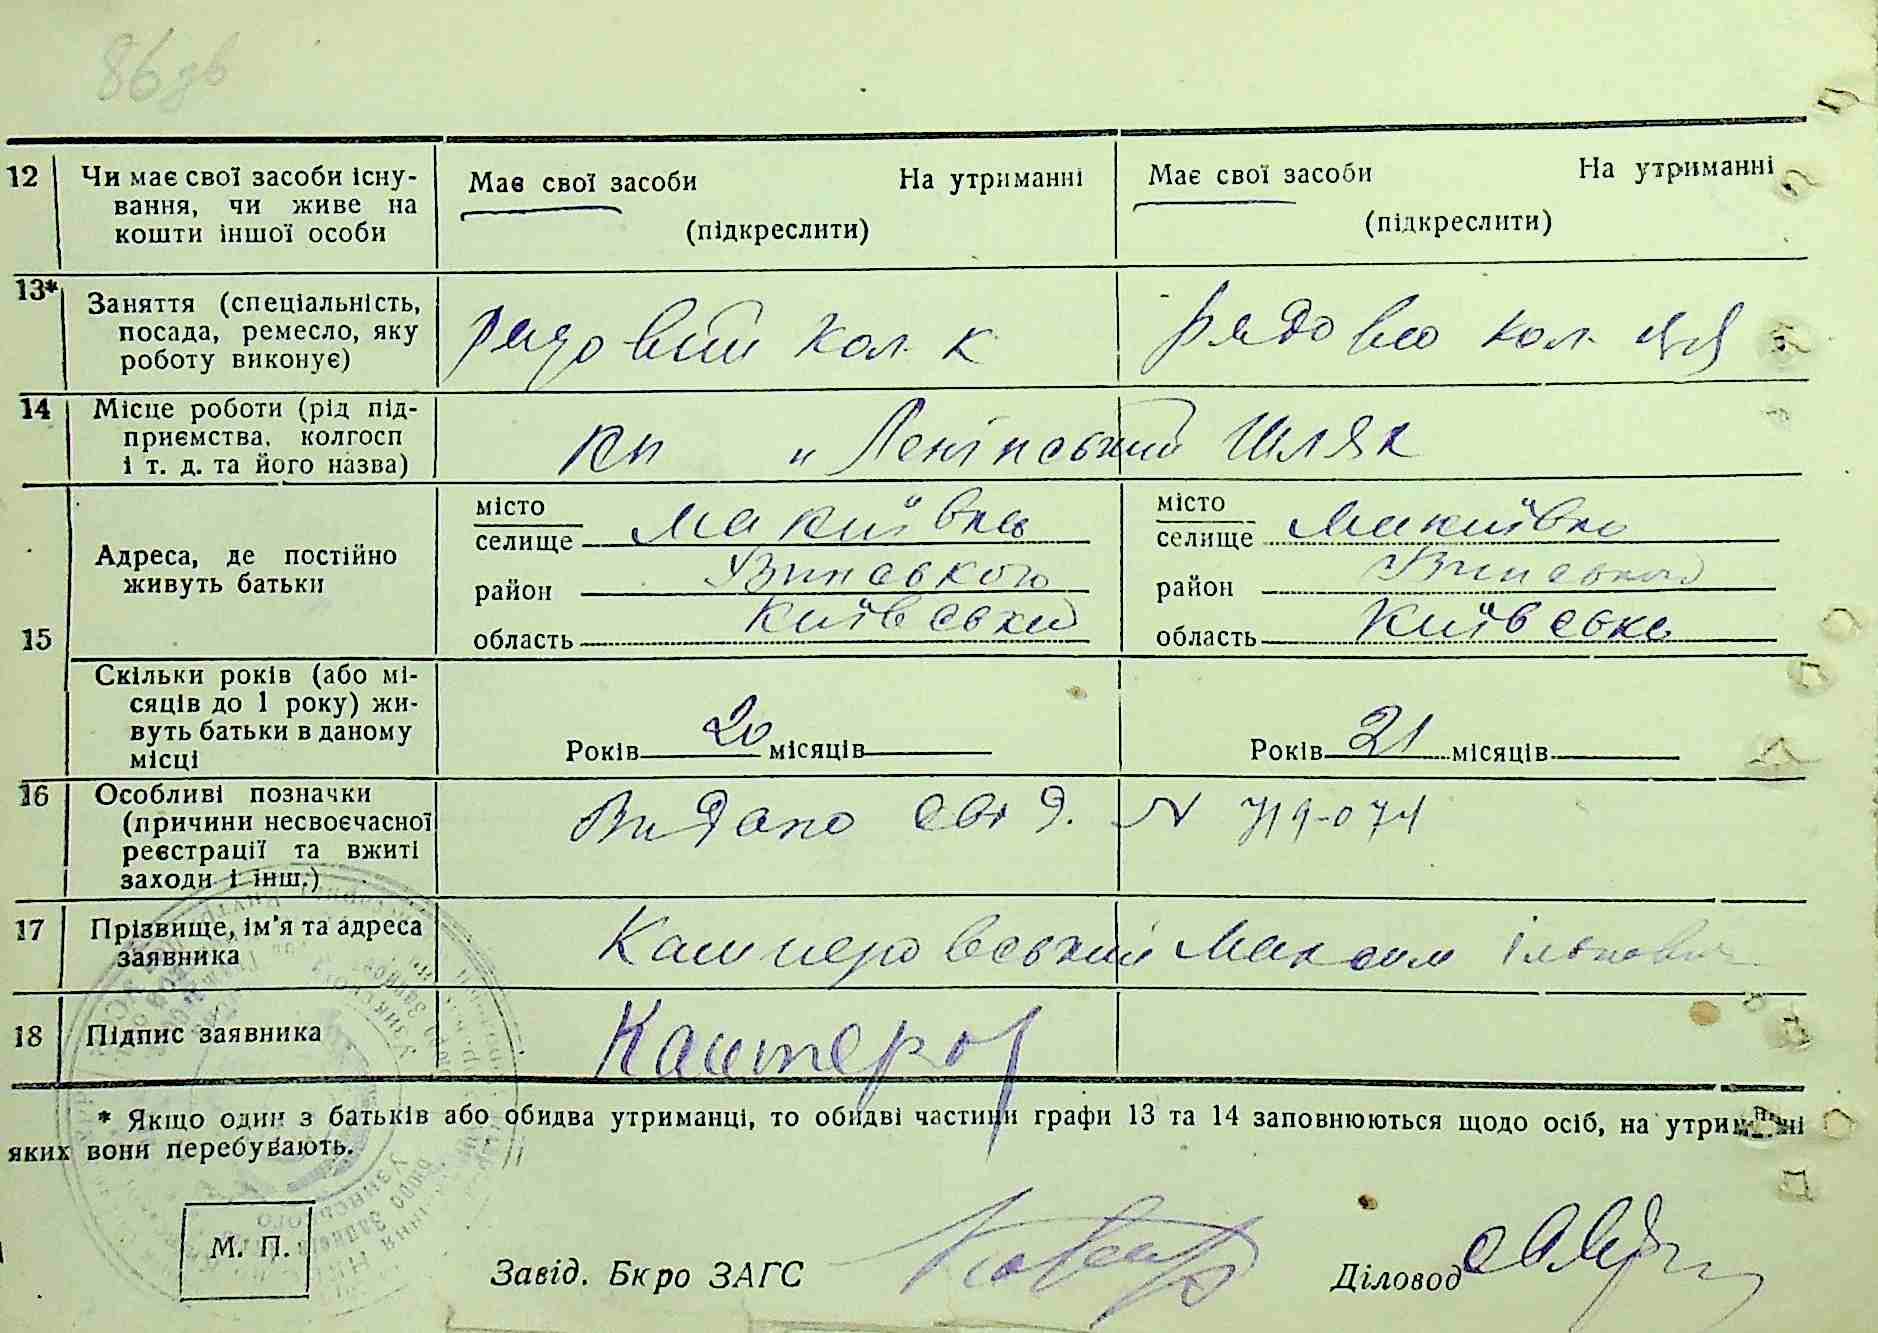 86 зв
12 Чи має свої засоби існу-
вання, чи живе на
кошти іншої особи
Має свої засоби На утриманні
(підкреслити)
Має свої засоби На утриманні
(підкреслити)
13* Заняття (спеціальність,
посада, ремесло, яку
роботу виконує)
рядовий кол. к
рядово кол. ця
14 Місце роботи (рід під-
приємства, колгосп
і т. д. та його назва)
кп "Ленінський Шлях
15 Адреса, де постійно
живуть батьки
місто
селище Макиївка
район Узинського
область Київський
місто
селище Макиївка
район Узинського
область Київська
Скільки років (або мі-
сяців до 1 року) жи-
вуть батьки в даному
місці
Років 20 місяців
Років 21 місяців
16 Особливі позначки
(причини несвоєчасної
реєстрації та вжиті
заходи і інш.)
Видано свід. N 719-071
17 Прізвище, ім'я та адреса
заявника
Кашперовський Максим Ількович
18 Підпис заявника
Каштеров
* Якщо один з батьків або обидва утриманці, то обидві частини графи 13 та 14 заповнюються щодо осіб, на утриманні
яких вони перебувають.
М. П.
Завід. Бюро ЗАГС
Діловод